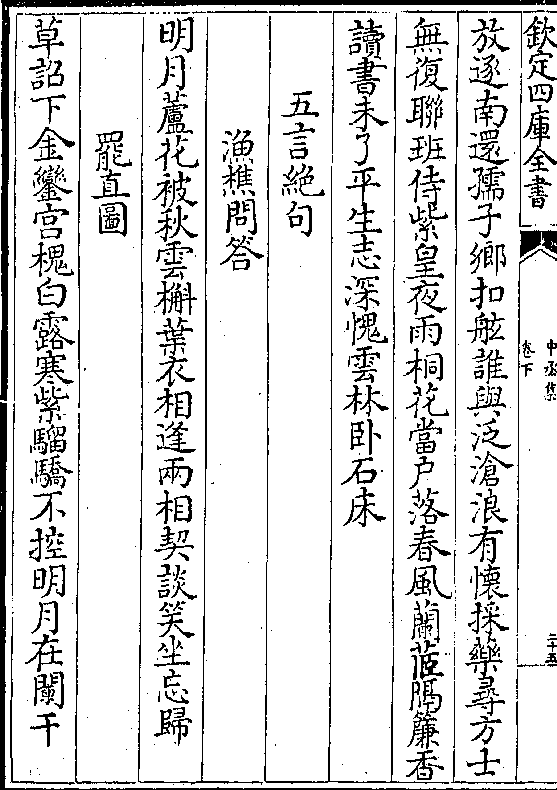 欽定四庫全書
中丞集
卷下
二十五
放逐南還孺子鄉扣舷誰與泛滄浪有懷採藥尋方士
無復聯班侍紫皇夜雨桐花當户落春風蘭茝隔簾香
讀書未了平生志深愧雲林卧石床
五言絶句
漁樵問答
明月蘆花被秋雲槲葉衣相逢兩相契談笑坐忘歸
罷直圖
草詔下金鑾宫槐白露寒紫騮驕不控明月在闌干